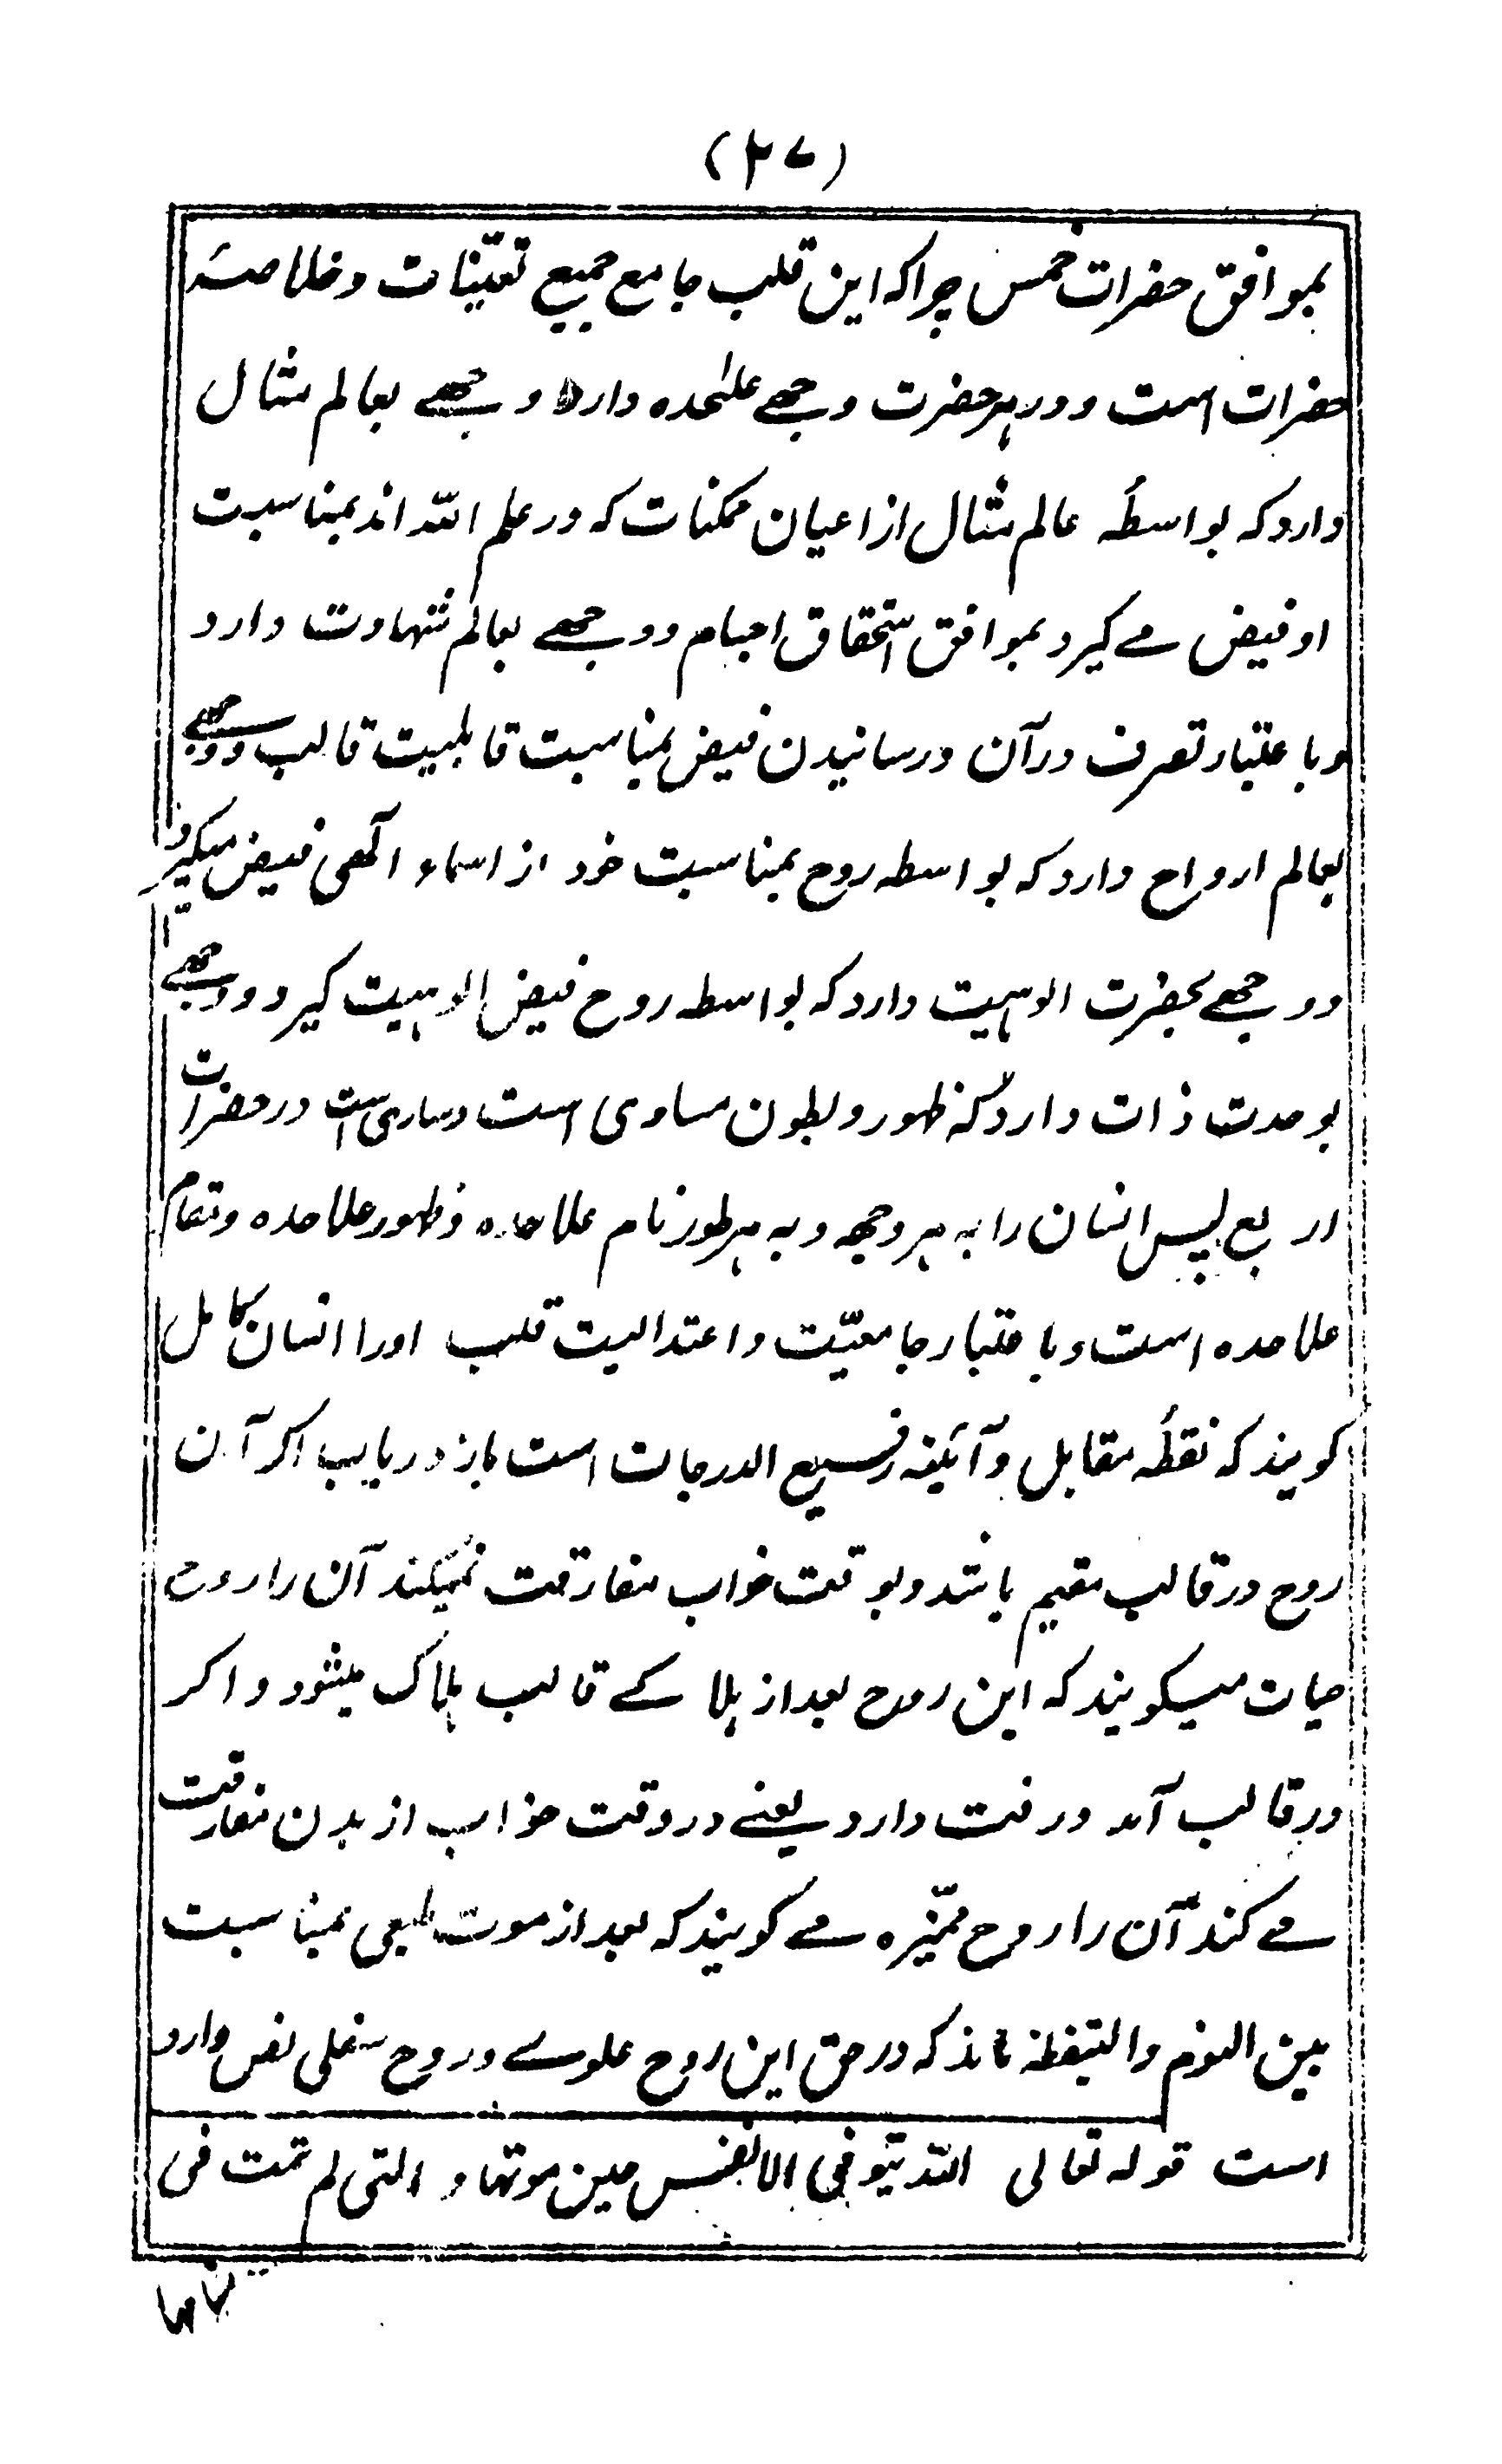 (۴۷)
بموافق حضرات خمس چراکه این قلب جامع جمیع تعیّنات و خلاصهٔ
حضرات است و در هر حضرت وجهے علٰحده دارد و وجهے بعالم مثال
دارد که بواسطهٔ عالم مثال از اعیان ممکنات که در علم الله اند بمناسبت
او فیض مے گیرد بموافق استحقاق اجسام و وجهے بعالم شهادت دارد
و باعتبار تصرف در آن و رسانیدن فیض بمناسبت قابلیت قالب و وجهے
بعالم ارواح دارد که بواسطه روح بمناسبت خود از اسماء الٓهی فیض میگیرد
و وجهے بحضرت الوهیت دارد که بواسطه روح فیض الوهیت گیرد و وجهے
بوحدت ذات دارد که ظهور و بطون مساوی است و ساری است در حضرات
اربع پس انسان را به هر وجهه و به هر طور نام علاحده و ظهور علاحده و مقام
علاحده است و باعتبار جامعیّت و اعتدالیت قلب اورا انسان کامل
گویند که نقطهٔ مقابل و آئینه رفیع الدرجات است باز دریاب اگر آن
روح در قالب مقیم باشد و بوقت خواب مفارقت نمیکند آن را روح
حیات میگویند که این روح بعد از هلاکے قالب هلاک میشود و اگر
در قالب آمد و رفت دارد یعنے در وقت خواب از بدن مفارقت
مے کند آن را روح ممیّزه مے گویند که بعد از موت طبعی بمناسبت
بین النوم والیقظة ماند که در حق این روح علوے و روح سفلی نص وارد
است قوله تعالی الله یتوفی الانفس حین موتها و التی لم تمت فی
۷۷